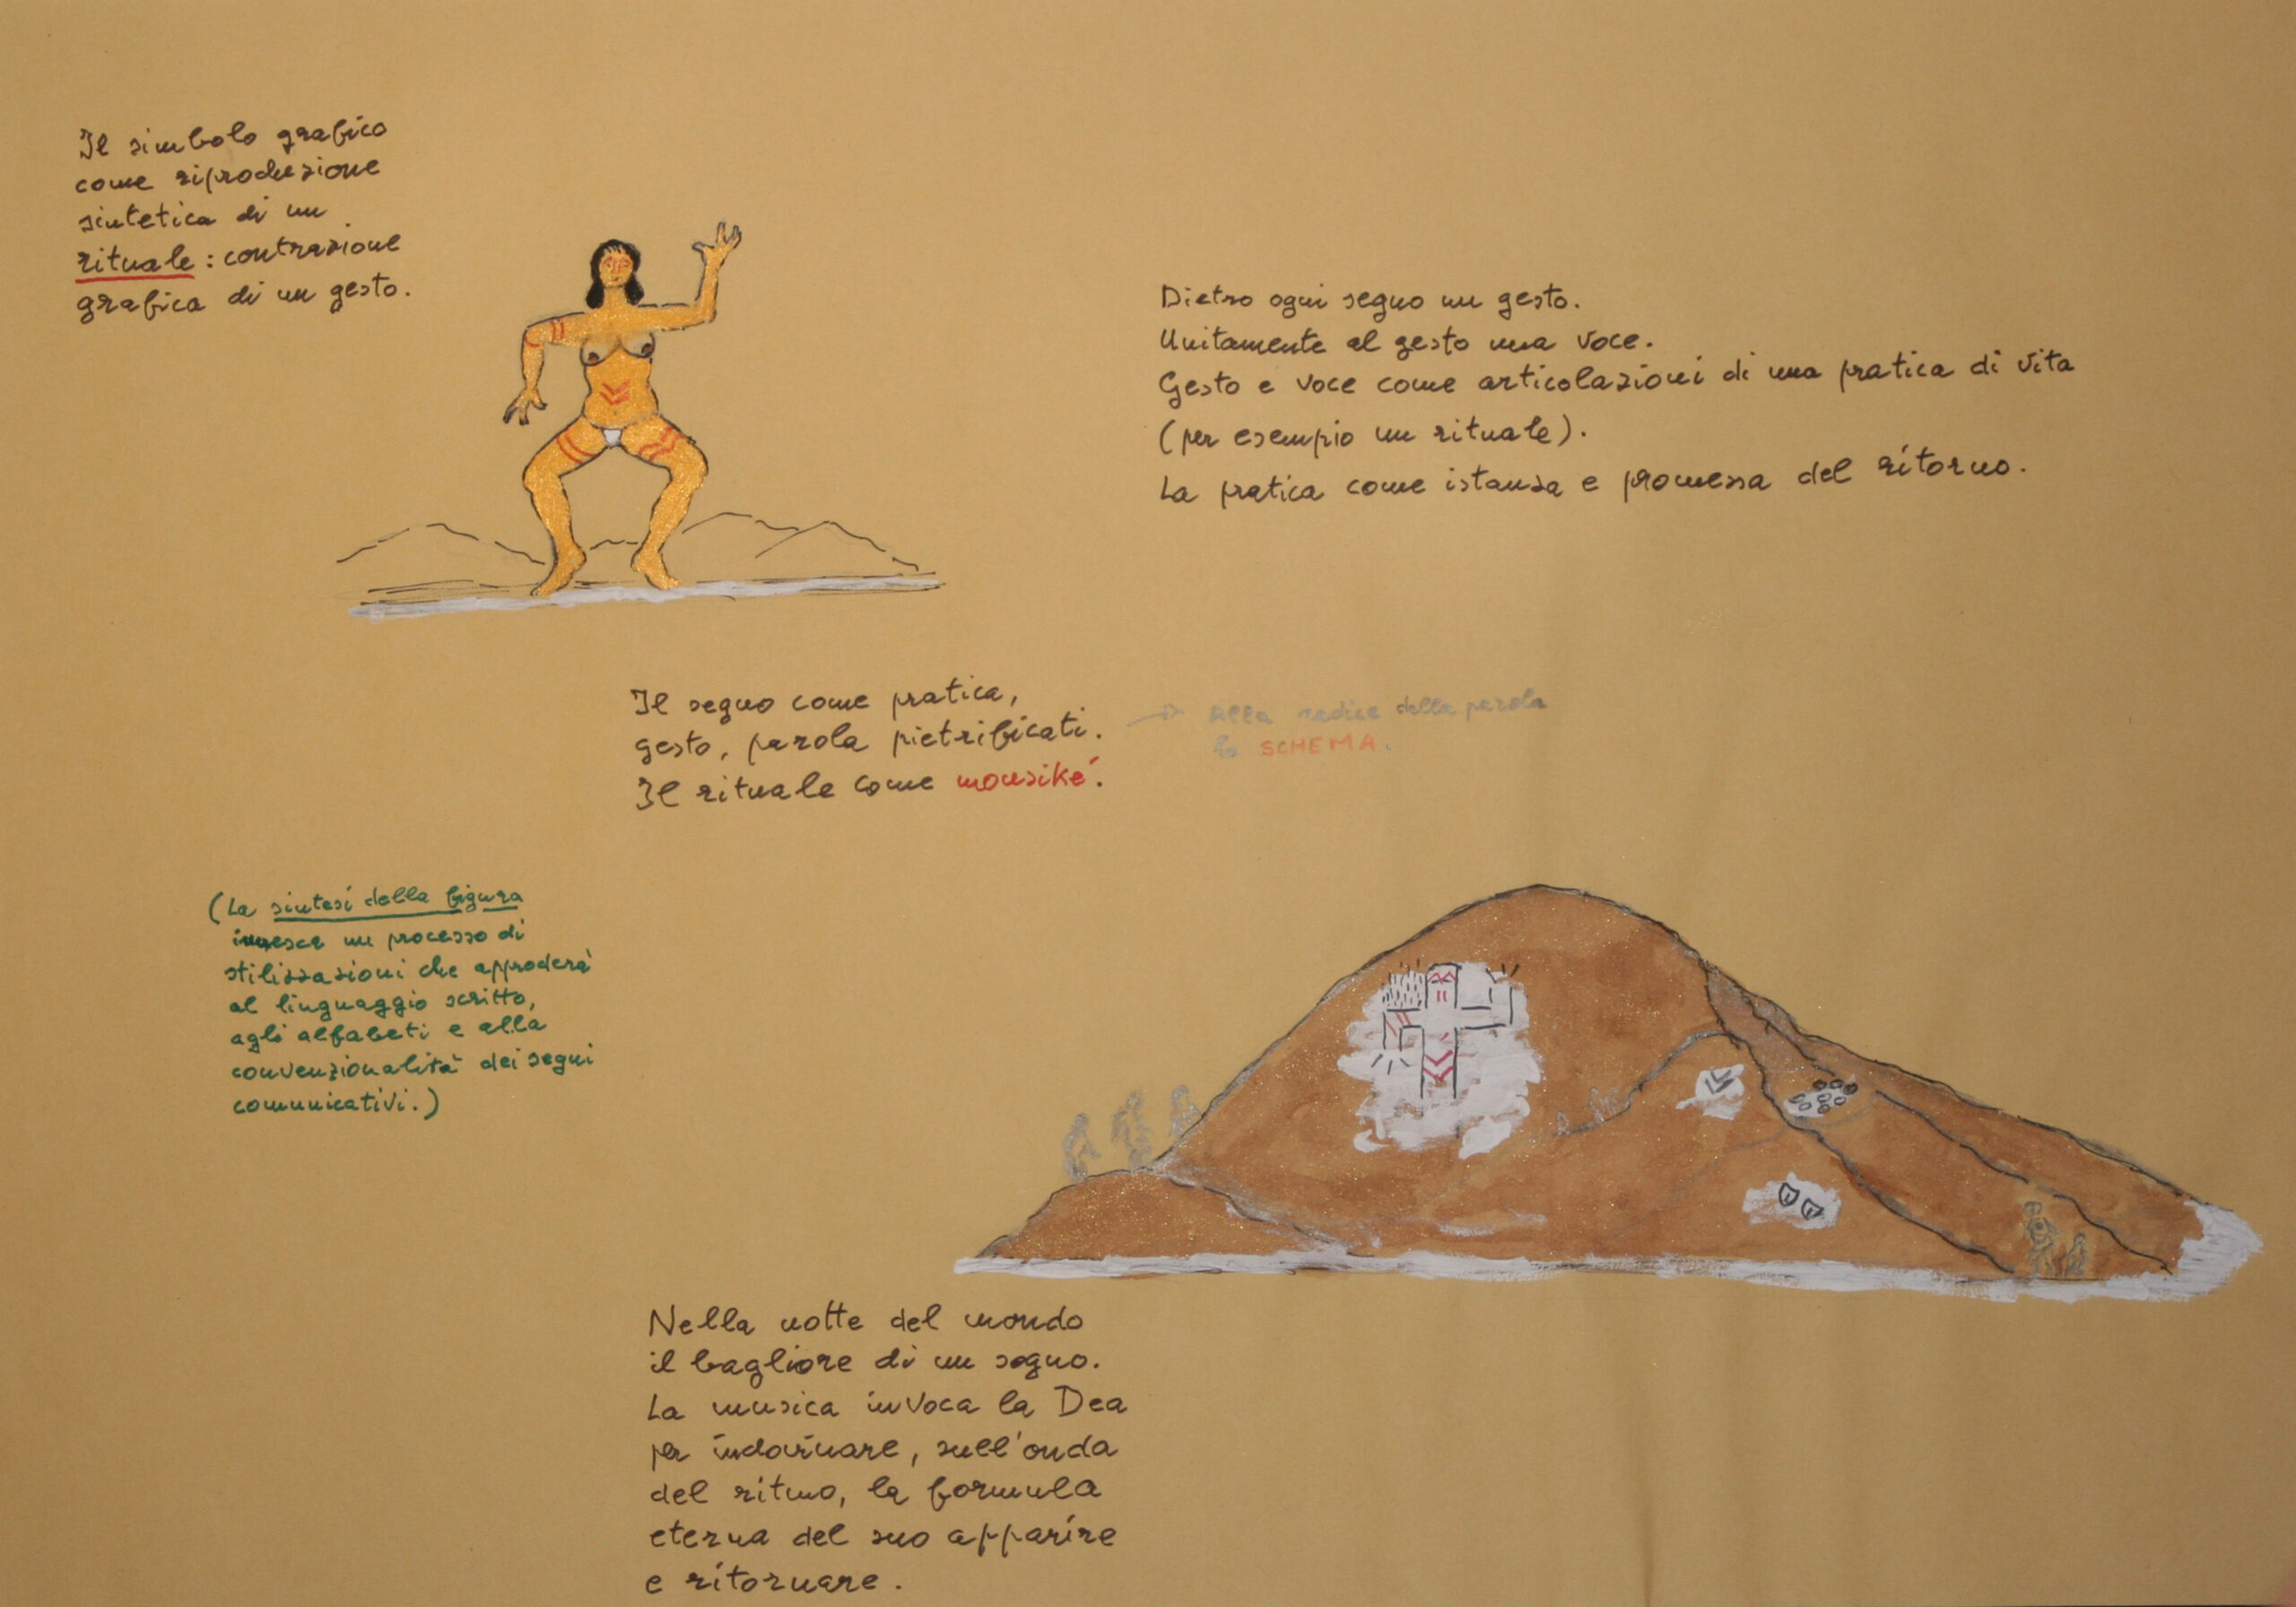 Il simbolo grafico
come riproduzione
sintetica di un
rituale: contrazione
grafica di un gesto.
Dietro ogni segno un gesto.
Unitamente al gesto una voce.
Gesto e voce come articolazioni di una pratica di vita
(per esempio un rituale).
La pratica come istanza e promessa del ritorno.
Il segno come pratica,
gesto, parola pietrificati.
Il rituale come mousiké.
→ Alla radice della parola
lo SCHEMA.
(La sintesi della figura
innesca un processo di
stilizzazioni che approderà
al linguaggio scritto,
agli alfabeti e alla
convenzionalità dei segni
comunicativi.)
Nella notte del mondo
il bagliore di un sogno.
La musica invoca la Dea
per indovinare, sull'onda
del ritmo, la formula
eterna del suo apparire
e ritornare.